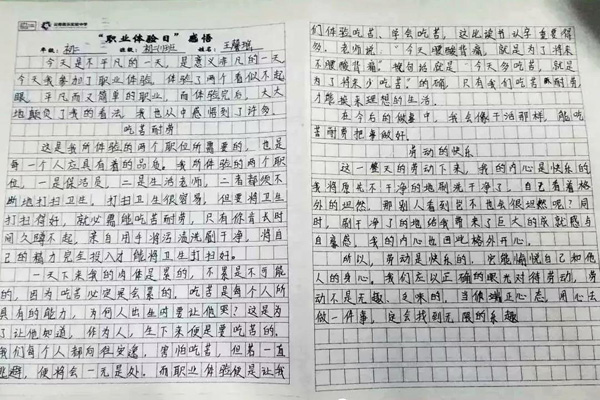 "职业体验日"感悟
年级：初二 班级： 姓名：王馨瑶
今天是不平凡的一天，是意义非凡的一天
今天我参加了职业体验，体验了两个看似不起
眼，平凡而又简单的职业，而体验完后，大大
地颠覆了我的看法，我也从中感悟到了许多。
吃苦耐劳
这是我所体验的两个职位所需要的，也是
每一个人应具有着的品质。我所体验的两个职
位，一是保洁员，二是生活老师，二者都须不
断地打扫卫生，打扫卫生很容易，但要将卫生
打扫得好，就必需能吃苦耐劳，只有你肯去时
间久蹲不起，亲自用手将污渍洗刷干净，将自
己的精力完全投入才能将卫生打扫好。
一天下来我的肉体是累的，不累是不可能
的，因为吃苦必定是会累的。吃苦是每个人所
具有的能力，为何人出生时要让他哭？这是为
了让他知道，作为人，生下来便是要吃苦的。
我们每个人都向往安逸，害怕吃苦，但若一直
逃避，便将会一无是处。而职业体验便是让我
们体验吃苦、学会吃苦，这比读书认字重要得
多。老师说，"今天腰酸背痛，就是为了将来
不腰酸背痛"换句话就是"今天多吃苦，就是
为了将来少吃苦。"的确，只有我们吃苦耐劳，
才能换来理想的生活。
在今后的做事中，我会像干活那样，能吃
苦耐劳把事做好。
劳动的快乐
这一整天的劳动下来，我的内心是快乐的
我将原先不干净的地刷洗干净了，自己看着格
外的坦然，那别人看到岂不也会很坦然呢？同
时，刷干净了的地给我带来了巨大的成就感与
自豪感，我的内心也因此格外开心。
所以，劳动是快乐的，更能愉悦自己和他
人的身心。我们应以正确的眼光对待劳动，劳
动不是无趣、乏味的，当你端正心态，用心去
做一件事，定会找到无限的乐趣